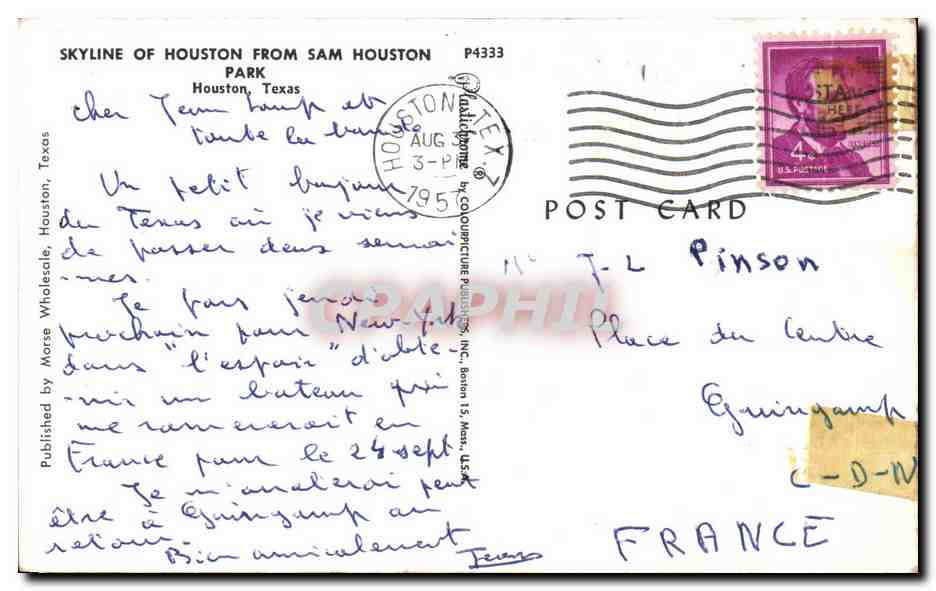 SKYLINE OF HOUSTON FROM SAM HOUSTON
PARK
Houston, Texas
P4333
Published by Morse Wholesale, Houston, Texas
Plastichrome ® by COLOURPICTURE PUBLISHERS, INC., Boston 15, Mass., U.S.A.
HOUSTON, TEX.
AUG
3-PM
1957
4¢
U.S. POSTAGE
POST CARD
Cher Jean et
toute la bande
Un petit bonjour
du Texas où je viens
de passer deux semai
-nes.
Je pars jeudi
prochain pour New-York
dans "l'espoir" d'obte-
-nir un bateau qui
me ramènerait en
France pour le 24 sept
Je m'arrêterai peut
être à Guingamp au
retour.
Bien amicalement
J-L Pinson
Place du Centre
Guingamp
C-D-N
FRANCE
CPAPHIL